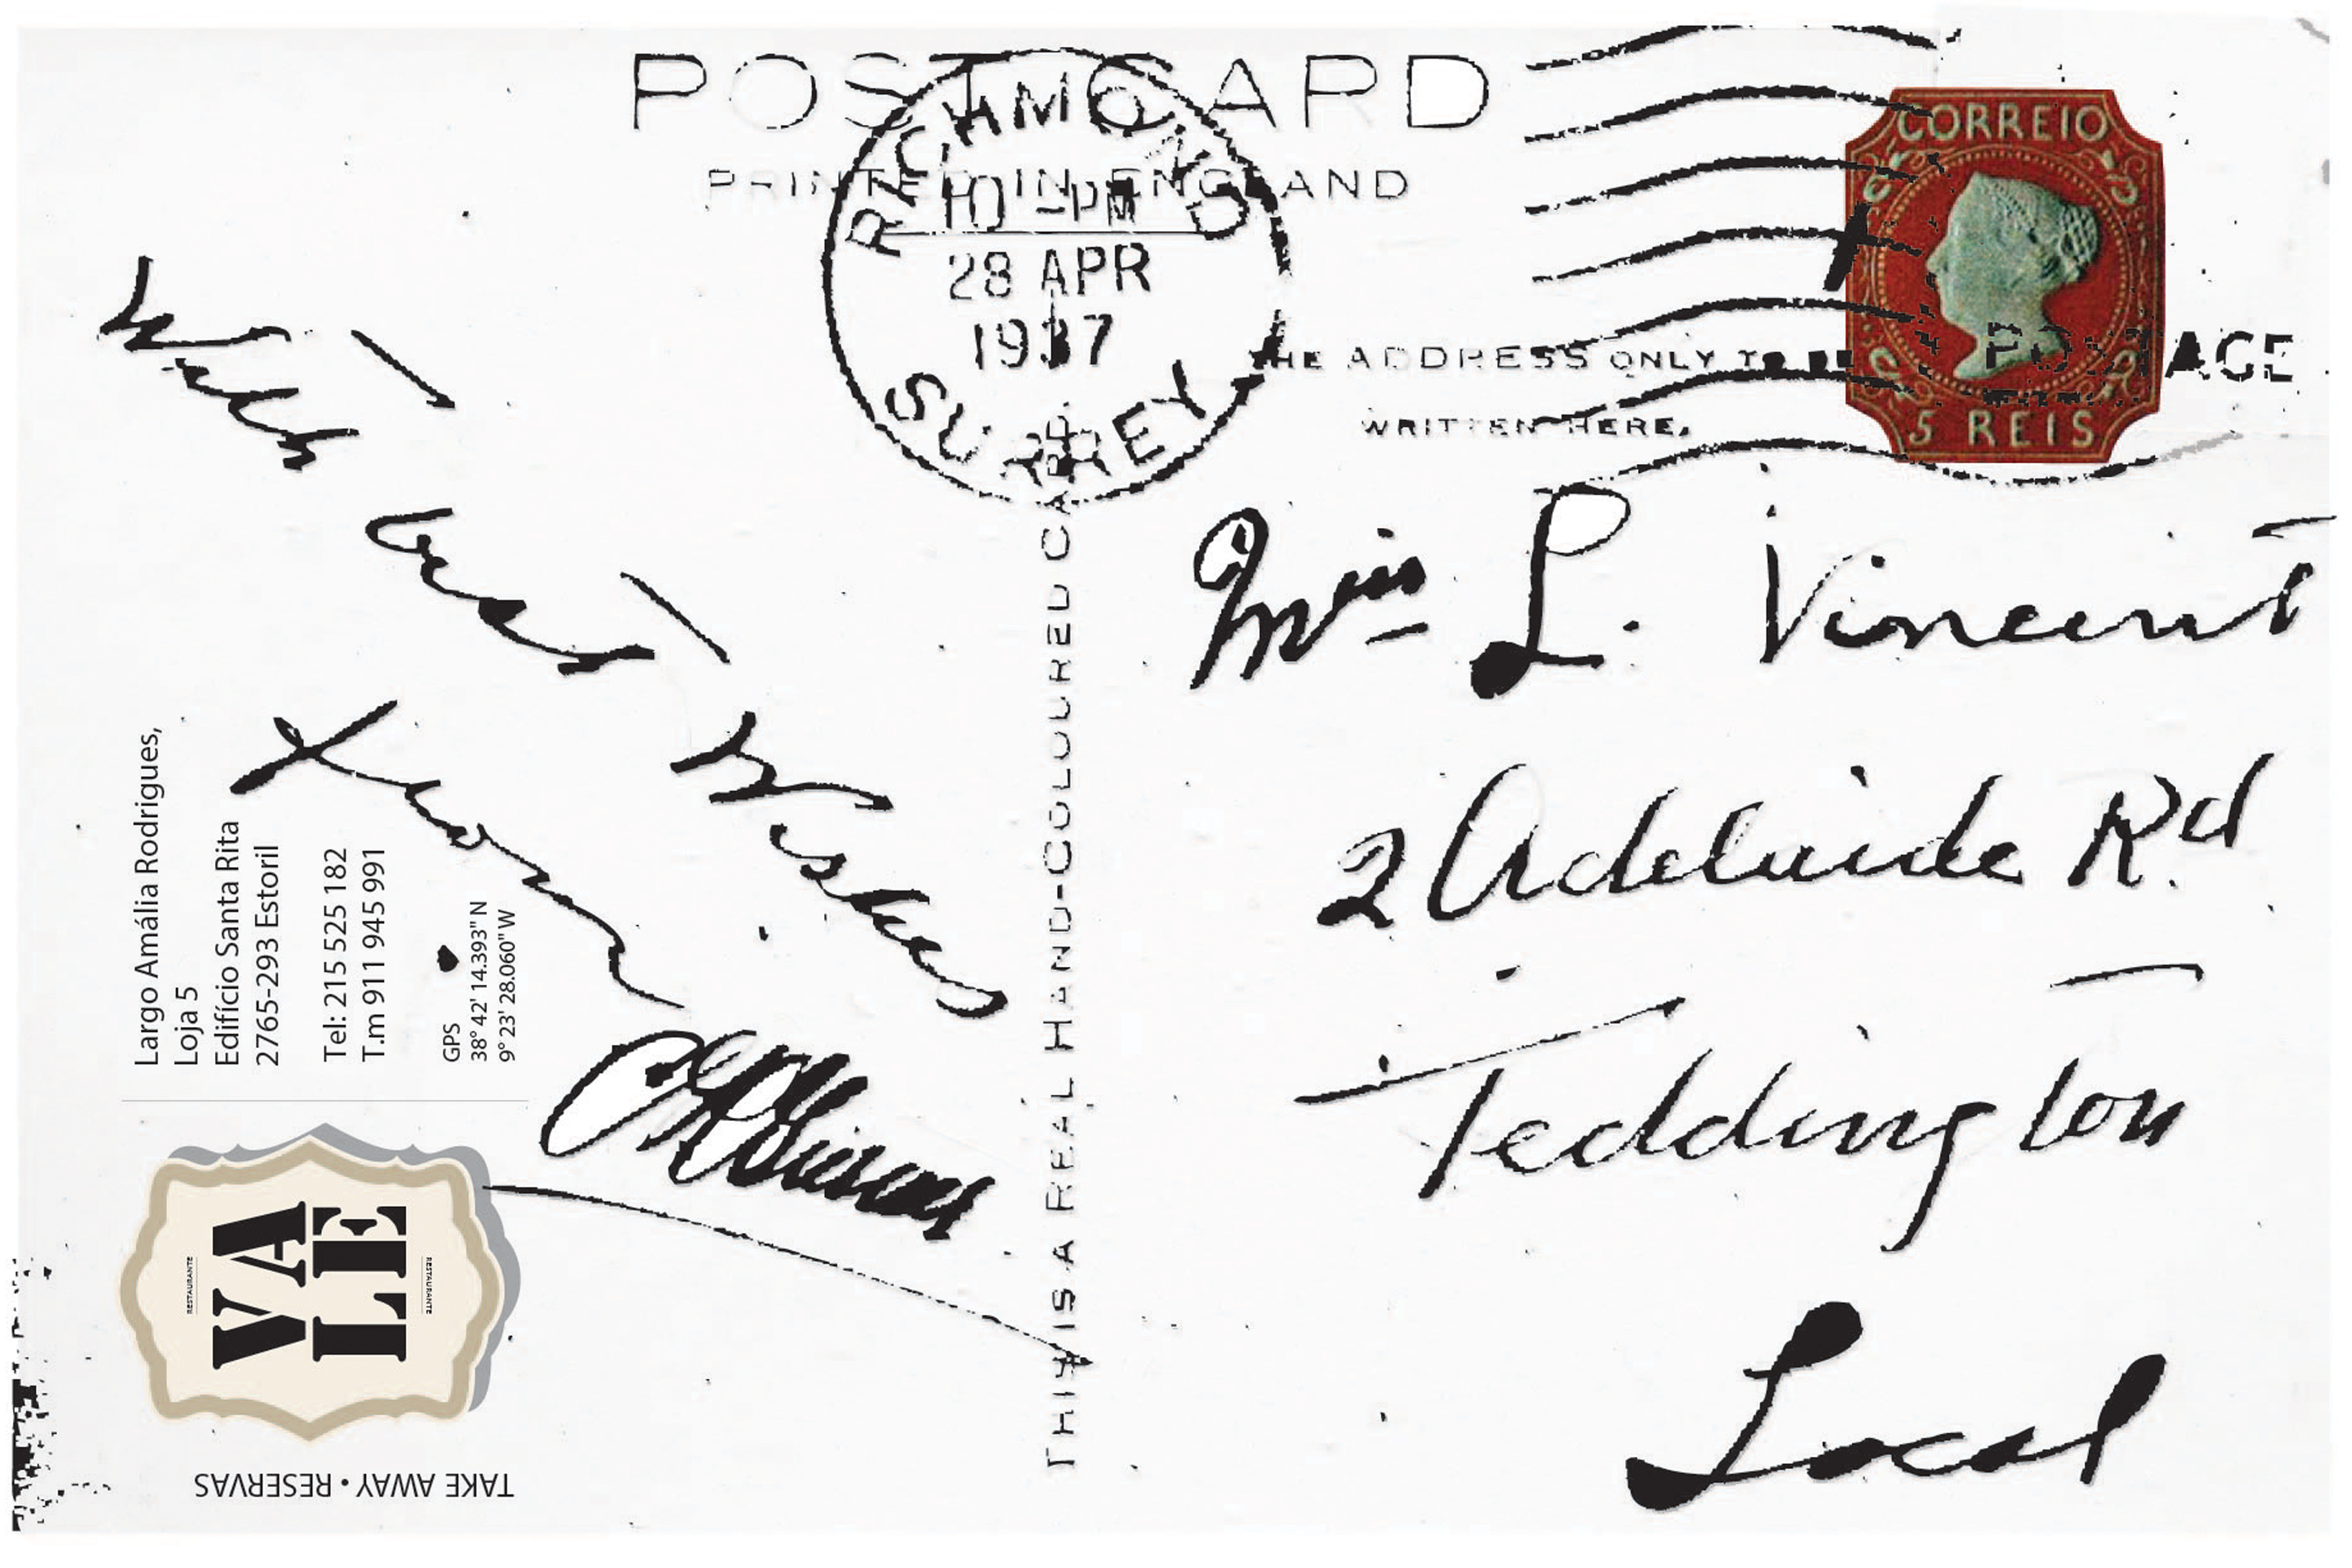 POST CARD
PRINTED IN ENGLAND
RICHMOND
10 - PM
28 APR
1937
SURREY
CORREIO
5 REIS
POSTAGE
THE ADDRESS ONLY TO BE
WRITTEN HERE.
With
best
Wishes
from
THIS IS A REAL HAND-COLOURED CARD.
Miss L. Vincent
2 Adelaide Rd
Teddington
Local
Largo Amália Rodrigues,
Loja 5
Edifício Santa Rita
2765-293 Estoril
Tel: 215 525 182
T.m 911 945 991
GPS
38° 42' 14.393" N
9° 23' 28.060" W
RESTAURANTE
VA
LE
RESTAURANTE
TAKE AWAY • RESERVAS